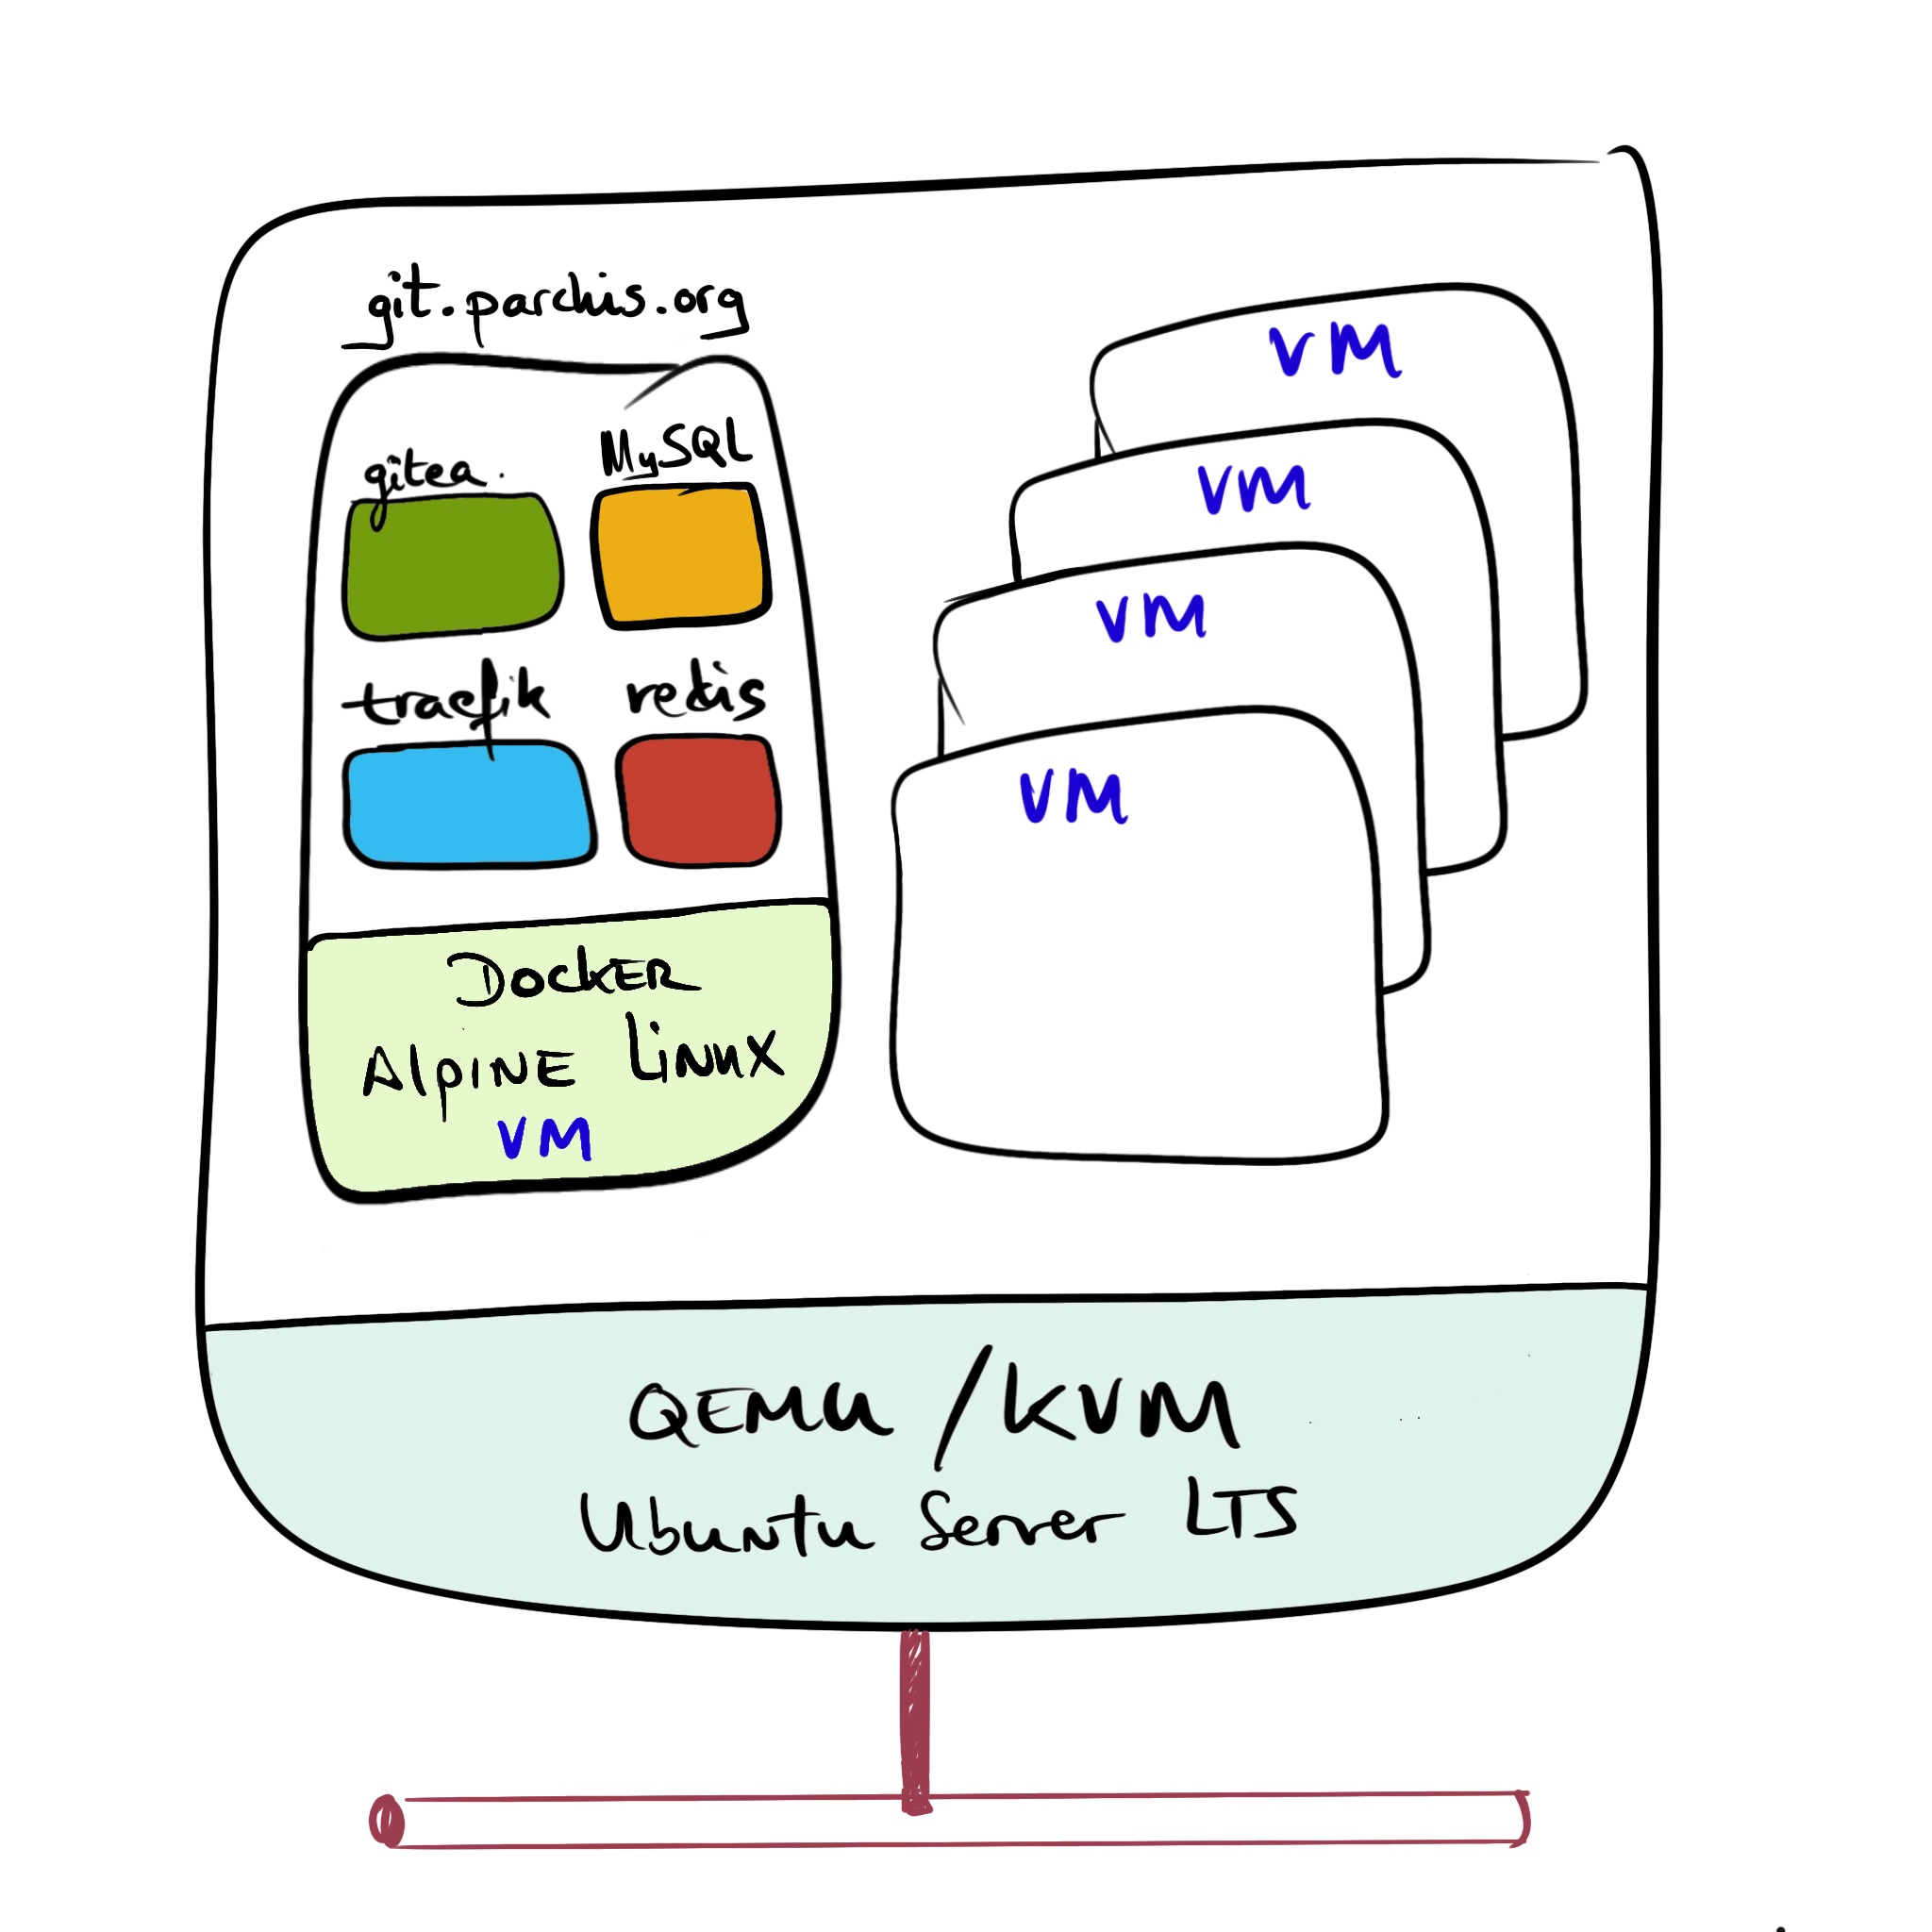 git.parchis.org
gitea.
MySQL
traefik
redis
DockER
AlpINE LiNUX
VM
VM
VM
VM
VM
QEMU / KVM
Ubuntu Server LTS